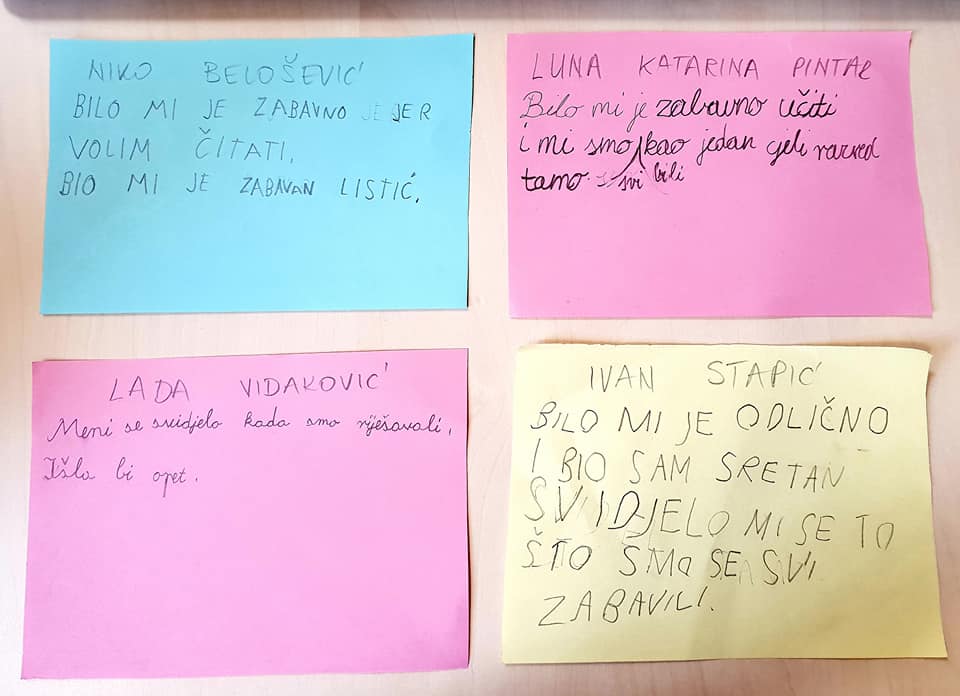 NIKO BELOŠEVIĆ
BILO MI JE ZABAVNO JE JER
VOLIM ČITATI.
BIO MI JE ZABAVAN LISTIĆ.
LUNA KATARINA PINTAR
Bilo mi je zabavno učiti
i mi smo kao jedan cjeli razred
tamo svi bili
LADA VIDAKOVIĆ
Meni se svidjelo kada smo rješavali,
Išla bi opet.
IVAN STAPIĆ
BILO MI JE ODLIČNO
I BIO SAM SRETAN
SVIDJELO MI SE TO
ŠTO SMO SE SVI
ZABAVILI.